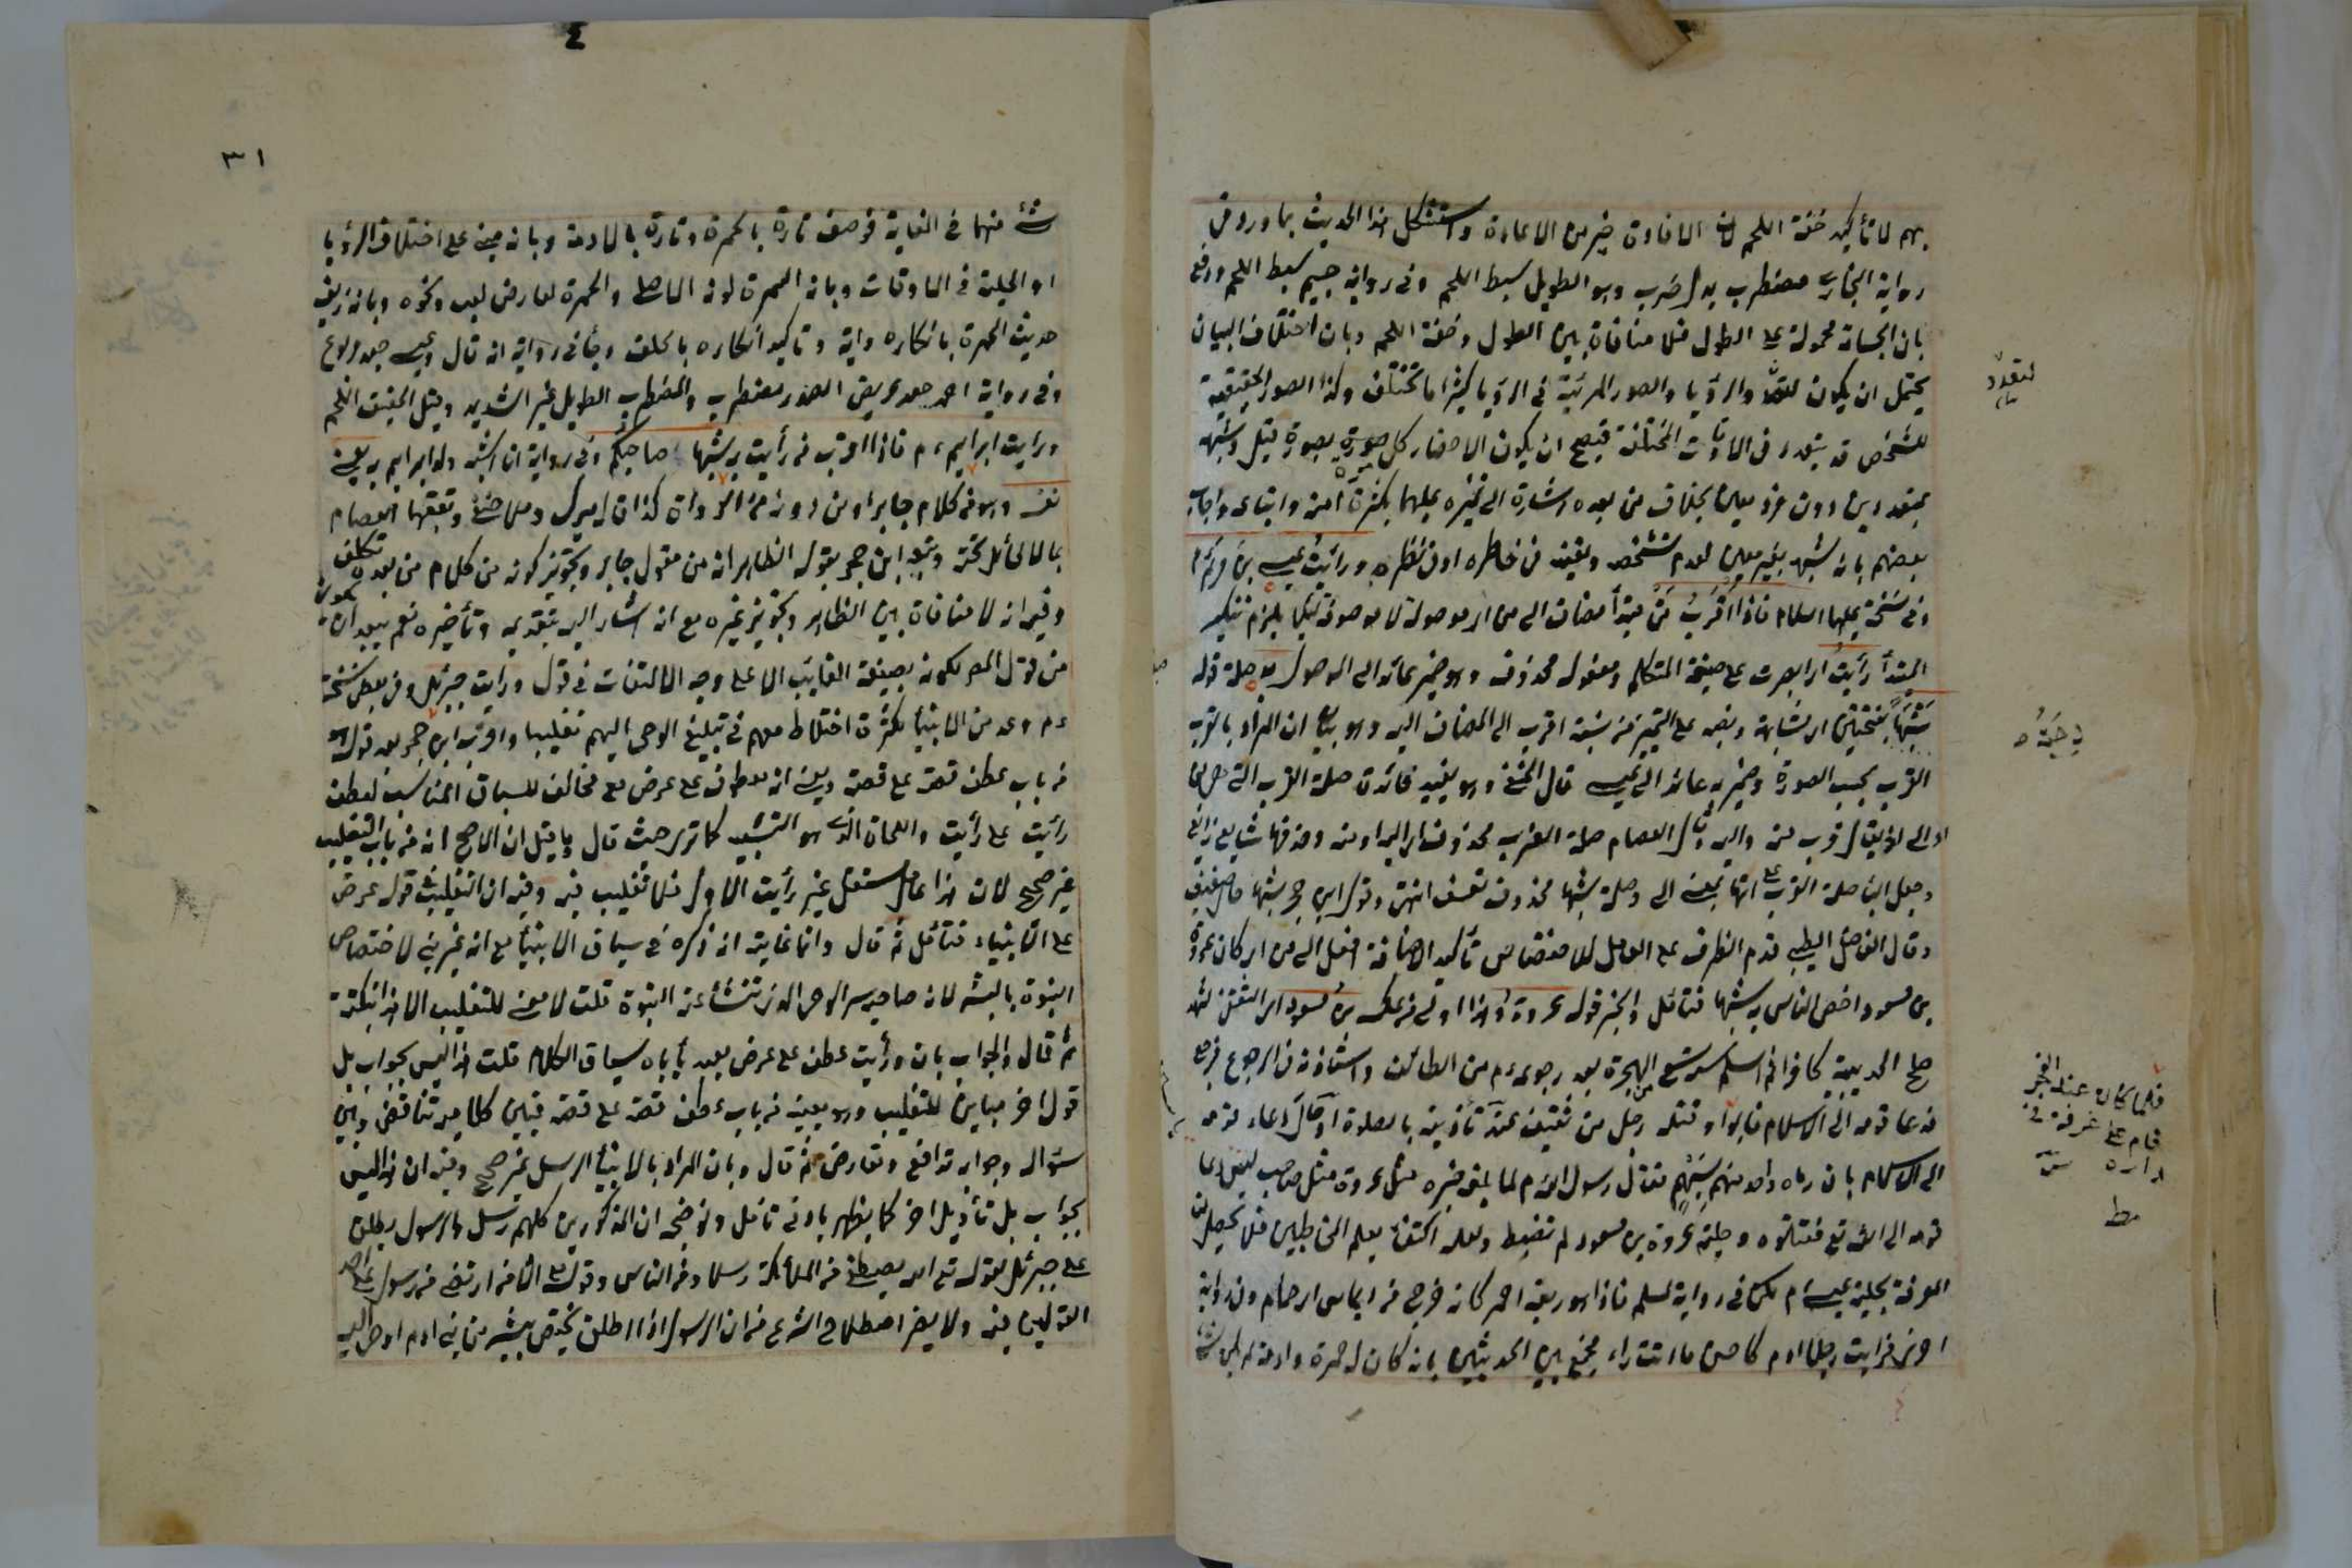 بهم لا تأكيد خفة اللحم لان الافادة خير من الاعادة واستشكل هذا الحديث بما ورد في
رواية البخاري مضطرب بدل ضرب وهو الطويل سبط اللحم وفي رواية جسيم سبط اللحم ودفع
بان الجسامة محمولة على الطول فلا منافاة بين الطول وخفة اللحم وبان اختلاف البيان
يحتمل ان يكون لتعدد الرؤيا والصور المرئية في الرؤيا كثيرا ما تختلف وكذا الصور الحقيقية
للشخص قد يتعدد في الاوقات المختلفة فيصح ان يكون الاخبار كل مرة بصورة قيل وشبه
بمتعددين دون فرد معين بخلاف من بعده اشارة الى تميزه عليهما بكثرة امته واتباعه واجاب
بعضهم بانه شبه بغير معين لعدم تشخصه وتعينه في خاطره او في نظره ورأيت عيسى بن مريم م
وفي نسخة عليهما السلام فاذا اقرب من مبتدأ مضاف الى من اي موصولة لا موصوفة لئلا يلزم تنكير
المبتدأ رأيت اي ابصرت على صيغة المتكلم ومفعوله محذوف وهو ضمير عائد الى الموصول به صلة قوله
شبها بفتحتين اي مشابهة ونصبه على التمييز من نسبة اقرب الى المضاف اليه وهو بيان ان المراد بالقرب
القرب بحسب الصورة وضمير به عائد الى عيسى قال الحنفي وهو يفيد فائدة صلة القرب التي هي من
او الى اذ يقال قرب منه واليه وقال العصام صلة القرب محذوف اي اليه او منه وحذفها شايع ذايع
وجعل الباء صلة القرب على انها بمعنى الى وصلة شبها محذوف تعسف انتهى وقول ابن حجر شبها
وقال الفاضل الطيبي قدم الظرف على العامل للاختصاص تأكيد الاضافة افعل الى من اي كان عروة
بن مسعود اخص الناس به شبها فتأمل والخبر قوله عروة وهذا اولى من عكسه بن مسعود اي الثقفي شهد
صلح الحديبية كافرا ثم اسلم سنة تسع من الهجرة بعد رجوعه م من الطائف واستأذنه في الرجوع فرجع
فدعا قومه الى الاسلام فابوا وقتله رجل من ثقيف عند تأذينه بالصلوة او حال دعاء قومه
الى الاسلام بان رماه واحد منهم بسهم فقال رسول الله م لما بلغه خبره مثل عروة مثل صاحب يس دعا
قومه الى الله تع فقتلوه وحلية عروة بن مسعود لم تضبط ولعله اكتفاء بعلم المخاطبين فلا يحصل لنا
المعرفة بحلية عيسى م لكن في رواية لمسلم فاذا هو ربعة احمر كانه خرج من ديماس اي حمام وفي رواية
اخرى فرأيت رجلا ادم كاحسن ما انت راء وجمع بين الحديثين بانه كان له حمرة وادمة لم يكن شئ
لتعدد
قلما كان عند الفجر
قام على غرفة في
داره
٣١
شئ منهما في الغاية فوصف تارة بالحمرة وتارة بالادمة وبانه مبني على اختلاف الرؤيا
او الحلية في الاوقات وبان السمرة لونه الاصلي والحمرة لعارض تعب ونحوه وبانه زيف
حديث الحمرة بانكار راويه وتأكيد انكاره بالحلف وجاء في رواية انه قال وعيسى جعد مربوع
وفي رواية احمر جعد عريض الصدر مضطرب والمضطرب الطويل غير الشديد وقيل الخفيف اللحم
ورأيت ابراهيم م فاذا اقرب من رأيت به شبها صاحبكم وفي رواية انا اشبه ولد ابراهيم به يعني
نفسه وهو من كلام جابر او من دونه من الرواة كذا قال ميرك وملا حنفي وتعقبها العصام
بما لا طائل تحته وتبعه ابن حجر بقوله الظاهر انه من مقول جابر وتجويز كونه من كلام من بعده تكلف
وفيه انه لا منافاة بين الظاهر وتجويز غيره مع انه اشار اليه بتقديمه وتأخيره نعم يبعد ان يكون
من قول المص لكونه بصيغة الغايب الا على وجه الالتفات في قوله ورأيت جبرئيل وفي بعض نسخة
ء م وعد من الانبياء لكثرة اختلاط معهم في تبليغ الوحي اليهم تغليبا واقرب ابن حجر بعد قوله
من باب عطف قصة على قصة وبعد انه معطوف على عرض على مخالف للسياق المناسب لعطف
رأيت على رأيت واللحاق الذي هو التشبيه كما ترى حيث قال وما قيل ان الاصح انه من باب التغليب
غير صحيح لان هذا عامل مستقل غير رأيت الاول فلا تغليب فيه وفيه ان التغليب في قوله عرض
على الانبياء فتأمل ثم قال وانما غايته انه ذكره في سياق الانبياء مع انه غير نبي لاختصاص
النبوة بالبشر لانه صاحب سر الوحي الذي تنشأ عنه النبوة قلت لا معنى للتغليب الا هذا النكتة
ثم قال والجواب بان ورأيت عطف على عرض بعيد يأباه سياق الكلام قلت هذا ليس بجواب بل
قول اخر مباين للتغليب وهو بعينه من باب عطف قصة على قصة فبين كلاميه تناقض وبين
سؤاله وجوابه تدافع وتعارض ثم قال وبان المراد بالانبياء الرسل غير صحيح وفيه ان هذا ليس
بجواب بل تأويل اخر كما يظهر بادنى تأمل وتوضيحه ان المذكورين كلهم رسل والرسول يطلق
على جبرئيل لقوله تع الله يصطفي من الملائكة رسلا ومن الناس وقوله الا من ارتضى من رسول على احد
القولين فيه ولا يضر اصطلاح الشرع من ان الرسول اذا اطلق يختص ببشر من بني ادم اوحى اليه